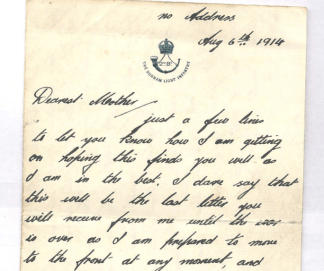 no Address
Aug 6th 1914
THE DURHAM LIGHT INFANTRY
Dearest Mother
just a few lines
to let you know how I am getting
on hoping this finds you well as
I am in the best. I dare say that
this will be the last letter you
will receive from me until the war
is over as I am prepared to move
to the front at any moment, and